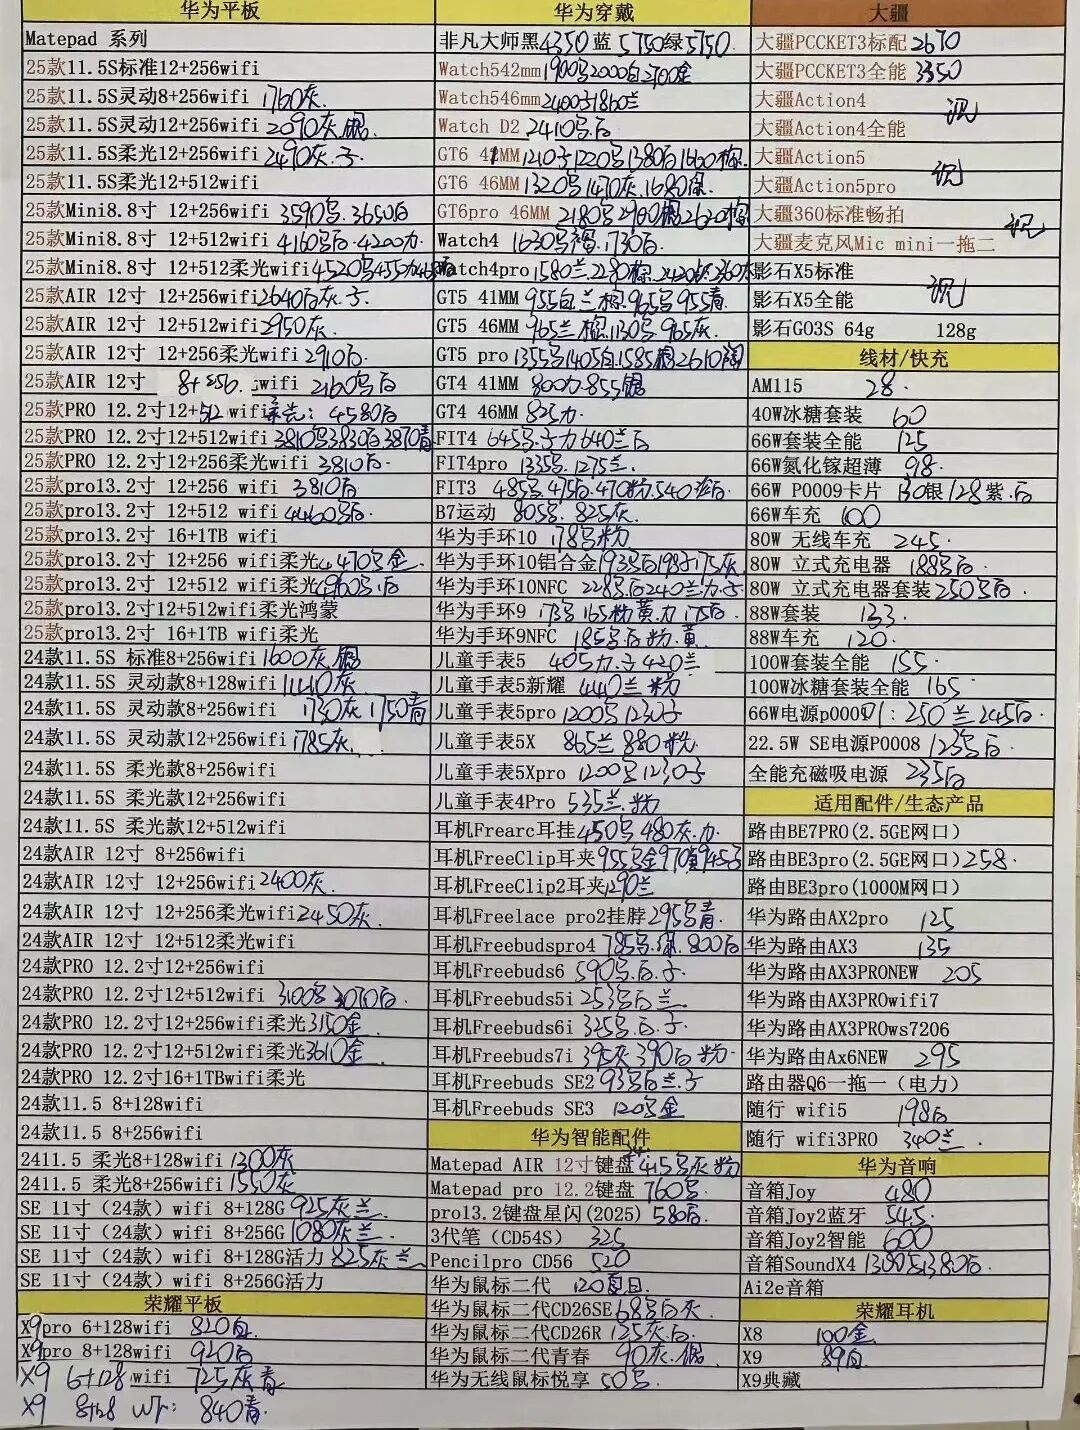 华为平板
Matepad 系列
25款11.5S标准12+256wifi
25款11.5S灵动8+256wifi 1760灰.
25款11.5S灵动12+256wifi 2090灰.银
25款11.5S柔光12+256wifi 2490灰.子
25款11.5S柔光12+512wifi
25款Mini8.8寸 12+256wifi 3590号.3650白
25款Mini8.8寸 12+512wifi 4160号白.4200力
25款Mini8.8寸 12+512柔光wifi 4520号4550力
25款AIR 12寸 12+256wifi 2640白灰.子.
25款AIR 12寸 12+512wifi 2950灰.
25款AIR 12寸 12+256柔光wifi 2910白.
25款AIR 12寸 8+256.wifi 2160号白
25款PRO 12.2寸12+512 wifi柔光: 4580白
25款PRO 12.2寸12+512wifi 3810号3830白3870青
25款PRO 12.2寸12+256柔光wifi 3810白.
25款pro13.2寸 12+256 wifi 3810白
25款pro13.2寸 12+512 wifi 4460号白.
25款pro13.2寸 16+1TB wifi
25款pro13.2寸 12+256 wifi柔光4470号金.
25款pro13.2寸 12+512 wifi柔光4960号.白
25款pro13.2寸12+512wifi柔光鸿蒙
25款pro13.2寸 16+1TB wifi柔光
24款11.5S 标准8+256wifi 1600灰.银
24款11.5S 灵动款8+128wifi 1440灰
24款11.5S 灵动款8+256wifi 1730灰 1750青
24款11.5S 灵动款12+256wifi 1785灰.
24款11.5S 柔光款8+256wifi
24款11.5S 柔光款12+256wifi
24款11.5S 柔光款12+512wifi
24款AIR 12寸 8+256wifi
24款AIR 12寸 12+256wifi 2400灰.
24款AIR 12寸 12+256柔光wifi 2450灰.
24款AIR 12寸 12+512柔光wifi
24款PRO 12.2寸12+256wifi
24款PRO 12.2寸12+512wifi 3100号 3070白.
24款PRO 12.2寸12+256wifi柔光3150金.
24款PRO 12.2寸12+512wifi柔光3610金.
24款PRO 12.2寸16+1TBwifi柔光
24款11.5 8+128wifi
24款11.5 8+256wifi
2411.5 柔光8+128wifi 1300灰
2411.5 柔光8+256wifi 1550灰
SE 11寸（24款）wifi 8+128G 925灰兰
SE 11寸（24款）wifi 8+256G 1080灰兰
SE 11寸（24款）wifi 8+128G活力 825灰兰
SE 11寸（24款）wifi 8+256G活力
荣耀平板
X9pro 6+128wifi 820白
X9pro 8+128wifi 920白
X9 6+128 wifi 725灰青
X9 8+128 wifi: 840青.
华为穿戴
非凡大师黑4350蓝5750绿5750.
Watch542mm1900号2000白2700金
Watch546mm2400子1860兰
Watch D2 2410号白
GT6 41MM1210子1220号1380白1660棕.
GT6 46MM 1320号1470灰.1680绿.
GT6pro 46MM 2180号
Watch4 1630号棕.1730白.
Watch4pro1580兰.2280棕.
GT5 41MM 955白兰棕.965号955青
GT5 46MM 965兰棕.1130号.965灰.
GT5 pro1355号1405白1585棕2610陶
GT4 41MM 800力.855银
GT4 46MM 825力.
FIT4 645号.子力640兰白
FIT4pro 1335号.1275兰.
FIT3 485号.475白.470粉.540金白
B7运动 805号.825灰.
华为手环10 178号粉
华为手环10铝合金193号白198子175灰
华为手环10NFC 228号白240兰力.子
华为手环9 173号 165粉黄.力175白
华为手环9NFC 185号白粉.黄
儿童手表5 405力.子420兰
儿童手表5新耀 440兰粉
儿童手表5pro1200号1230子
儿童手表5X 865兰 880粉
儿童手表5Xpro 1200号1230子
儿童手表4Pro 535兰.粉
耳机Frearc耳挂450号480灰.力
耳机FreeClip耳夹955号金970
耳机FreeClip2耳夹1290兰
耳机Freelace pro2挂脖295号青.
耳机Freebudspro4 785号.绿.800白
耳机Freebuds6 590号.白.子
耳机Freebuds5i 253号白兰.
耳机Freebuds6i 325号.白.子
耳机Freebuds7i 395灰390白粉.
耳机Freebuds SE2 93号白兰.子
耳机Freebuds SE3 120号金
华为智能配件
Matepad AIR 12寸键盘415号灰粉
Matepad pro 12.2键盘760号
pro13.2键盘星闪(2025) 580白.
3代笔（CD54S） 325
Pencilpro CD56 520
华为鼠标二代 120
华为鼠标二代CD26SE68号白灰.
华为鼠标二代CD26R 125灰白.
华为鼠标二代青春 90灰.
华为无线鼠标悦享 50号.
大疆
大疆PCCKET3标配2670
大疆PCCKET3全能3350
大疆Action4
讯
大疆Action4全能
大疆Action5
讯
大疆Action5pro
大疆360标准畅拍
讯
大疆麦克风Mic mini一拖二
影石X5标准
讯
影石X5全能
影石GO3S 64g 128g
线材/快充
AM115 28.
40W冰糖套装 60
66W套装全能 125
66W氮化镓超薄 98.
66W P0009卡片 130银128紫.白
66W车充 100
80W 无线车充 245.
80W 立式充电器 188号白
80W 立式充电器套装250号白.
88W套装 133.
88W车充 120.
100W套装全能 155.
100W冰糖套装全能 165.
66W电源p0001: 250兰245白.
22.5W SE电源P0008 123号白
全能充磁吸电源 235白
适用配件/生态产品
路由BE7PRO(2.5GE网口)
路由BE3pro(2.5GE网口)258.
路由BE3pro(1000M网口)
华为路由AX2pro 125
华为路由AX3 135
华为路由AX3PRONEW 205
华为路由AX3PROwifi7
华为路由AX3PROws7206
华为路由Ax6NEW 295
路由器Q6一拖一（电力）
随行 wifi5 198白
随行 wifi3PRO 340兰.
华为音响
音箱Joy 480
音箱Joy2蓝牙 545.
音箱Joy2智能 600
音箱SoundX4 1300号1380白.
Ai2e音箱
荣耀耳机
X8 100金.
X9 89白
X9典藏